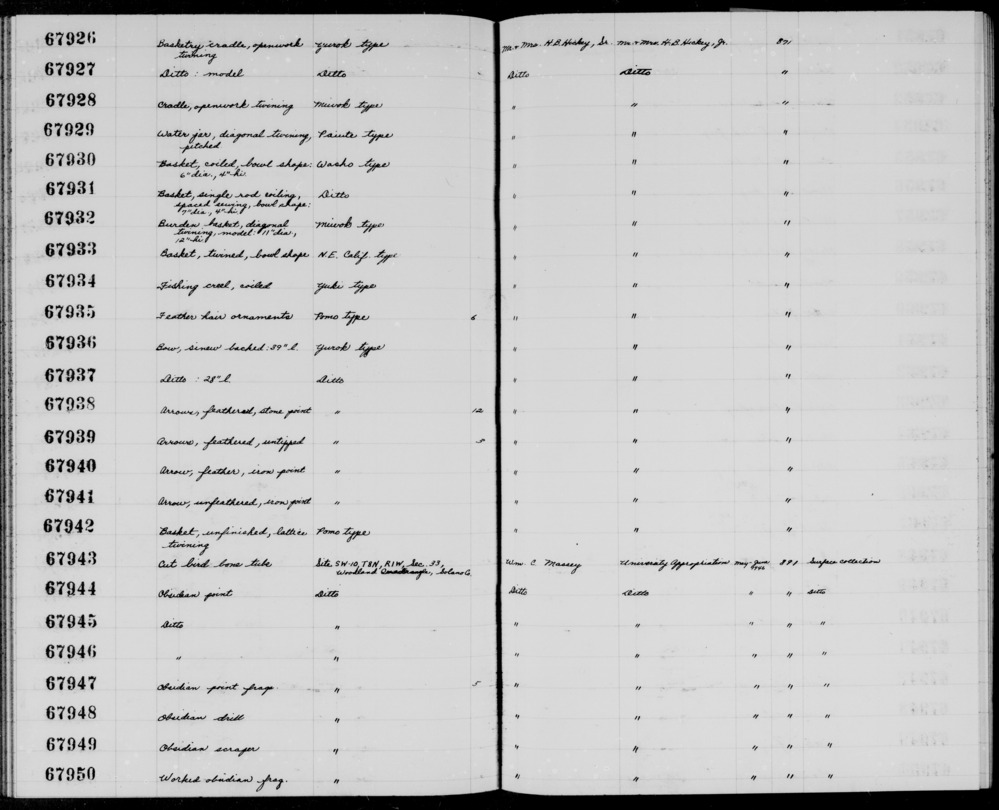 67926 Basketry cradle, openwork Yurok type Mr. & Mrs. H.B. Hickey, Sr. Mr. & Mrs. H.B. Hickey, Jr. 891
twining
67927 Ditto : model Ditto Ditto Ditto "
67928 Cradle, openwork twining Miwok type " " "
67929 Water jar, diagonal twining, Paiute type " " "
pitched
67930 Basket, coiled, bowl shape: Washo type " " "
6" dia., 4" hi.
67931 Basket, single rod coiling, Ditto " " "
spaced sewing, bowl shape:
7" dia., 4" hi
67932 Burden basket, diagonal Miwok type " " "
twining, model: 11" dia.,
12" hi
67933 Basket, twined, bowl shape N.E. Calif. type " " "
67934 Fishing creel, coiled Yuki type " " "
67935 Feather hair ornaments Pomo type 6 " " "
67936 Bow, sinew backed: 39" l. Yurok type " " "
67937 Ditto : 28" l. Ditto " " "
67938 Arrows, feathered, stone point " 12 " " "
67939 Arrows, feathered, untipped " 5 " " "
67940 Arrow, feather, iron point " " " "
67941 Arrow, unfeathered, iron point " " " "
67942 Basket, unfinished, lattice Pomo type " " "
twining
67943 Cut bird bone tube Site SW-10, T8N, R1W, Sec. 33, Wm. C. Massey University Appropriation May-June 891 Surface collection
Woodland Quadrangle, Solano Co.
67944 Obsidian point Ditto Ditto Ditto " " Ditto
67945 Ditto " " " " " "
67946 " " " " " " "
67947 Obsidian point frags. " 5 " " " " "
67948 Obsidian drill " " " " " "
67949 Obsidian scraper " " " " " "
67950 Worked obsidian frag. " " " " " "